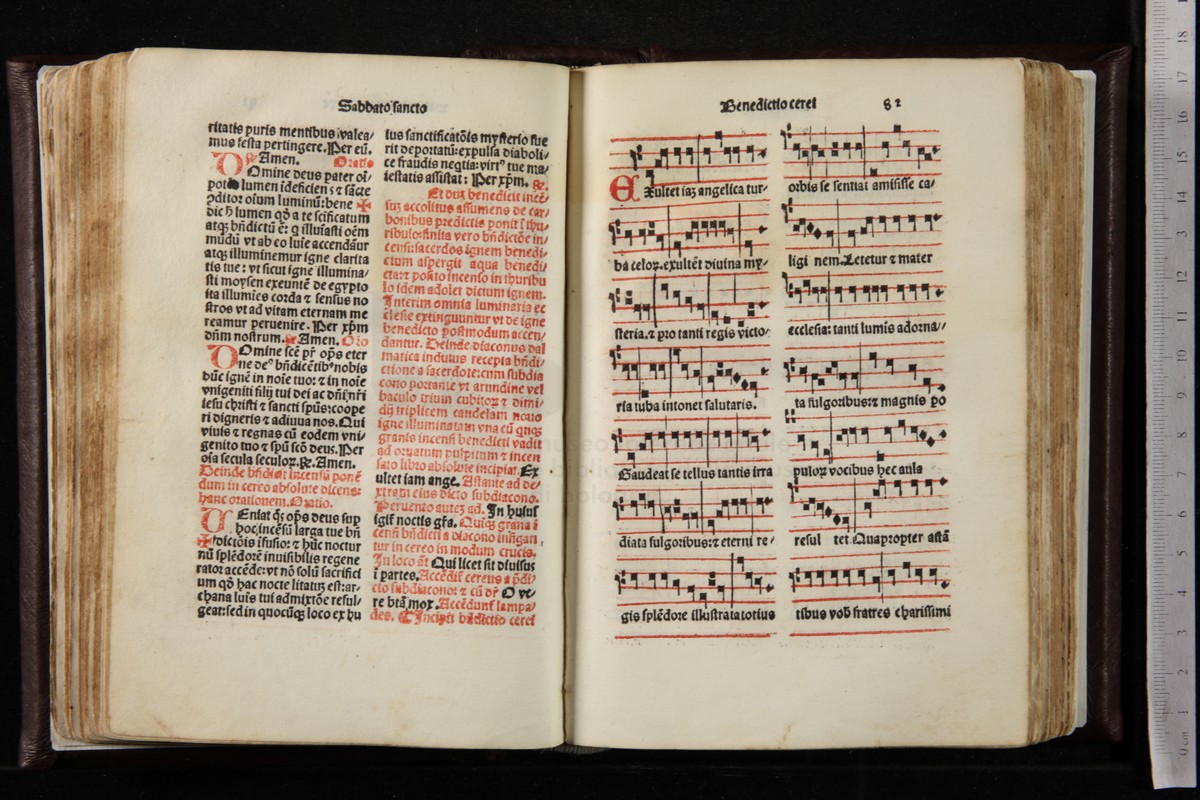 Sabbato sancto
ritatis puris mentibus valea/
mus festa pertingere. Per eū.
℟ Amen. Oratio
Omine deus pater oī
lumen īdeficiens ⁊ sācte
ꝯditor oīum luminū: bene ✠
dic h̄ lumen qḋ a te scīficatum
atqꝫ bn̄dictū ē: q illuīasti oēm
mūdū vt ab eo luīe accendāur
atqꝫ illuminemur igne clarita
tis tue: vt sicut igne illumina/
sti moysen exeuntē de egypto
ita illumies corda ⁊ sensus no
stros vt ad vitam eternam me
reamur peruenire. Per xp̄m
dn̄m nostrum. ℟ Amen. Oro
Omine scē pr̄ op̄s eter
ne deꝰ bn̄dicētibꝰ nobis
hūc ignē in noīe tuo: ⁊ in noīe
vnigeniti filij tui dei ac dn̄i nr̄i
iesu christi ⁊ sancti spūs: coope
ri digneris ⁊ adiuua nos. Qui
viuis ⁊ regnas cū eodem vni/
genito tuo ⁊ spū scō deus. Per
oīa secula seculoꝝ. ℟. Amen.
Deinde bn̄dicat incensū ponē
dum in cereo absolute dicens:
hanc orationem. Oratio.
Eniat qs̄ op̄s deus sup
hoc incēsū larga tue bn̄
✠ dictiōis īfusio: ⁊ hūc noctur
nū splēdorē inuisibilis regene
rator accēde: vt nō solū sacrifici
um qḋ hac nocte litatuꝫ est: ar/
chana luīs tui admixtiōe reful/
geat: sed in quocūqꝫ loco ex hu
ius sanctificatōis mysterio fue
rit deportatū: expulsa diaboli/
ce fraudis neqtia: virtꝰ tue ma/
iestatis assistat: Per xp̄m. ℟.
Et duꝫ benedicit incē/
suꝫ accolitus assumens de car/
bonibus predictis ponit ī thu/
ribulo: finita vero bn̄dictōe in/
censi: sacerdos ignem benedi/
ctum aspergit aqua benedi/
cta: ⁊ posito incenso in thuribu
lo idem adolet dictum ignem.
Interim omnia luminaria ec
clesie extinguuntur vt de igne
benedicto postmodum accen/
dantur. Deinde diaconus dal
matica indutus recepta bn̄di/
ctione a sacerdote: cum subdia
cono portante vt arundine vel
baculo trium cubitoꝝ ⁊ dimi/
dij triplicem candelam nouo
igne illuminatam vna cū qnqꝫ
granis incensi benedicti vadit
ad ornatum pulpitum ⁊ incen
sato libro absolute incipiat. Ex
ultet iam ange. Astante ad de/
xtram eius dicto subdiacono.
Peruento auteꝫ ad. In huius
igit̄ noctis gr̄a. Quinqꝫ grana ī
censi bn̄dicti a diacono infigan/
tur in cereo in modum crucis.
In loco āt Qui licet sit diuisus
ī partes. Accēdit̄ cereus a p̄di/
cto subdiacono: ⁊ cū dr̄ O ve/
re btā nox. Accēdunt̄ lampa/
des. Incipit bn̄dictio cerei
Benedictio cerei 82
Exultet iaꝫ angelica tur/
ba celoꝝ. exultēt diuina my/
steria. ⁊ pro tanti regis victo/
ria tuba intonet salutaris.
Gaudeat se tellus tantis irra
diata fulgoribus: ⁊ eterni re/
gis splēdore illustrata totius
orbis se sentiat amisisse ca/
ligi nem. Letetur ⁊ mater
ecclesia: tanti lumīs adorna/
ta fulgoribus: ⁊ magnis po
puloꝝ vocibus hec aula
resul tet Quapropter astā
tibus vob̄ fratres charissimi